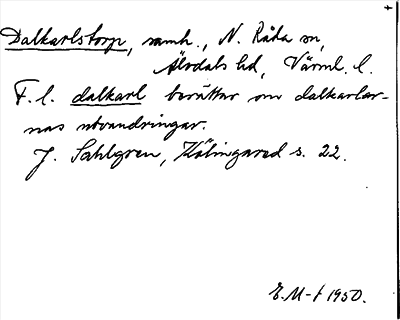 Dalkarlstorp, samh., N. Råda sn,
Älvdals hd, Värml. l.
F. l. dalkarl berättar om dalkarlar-
nas utvandringar.
J. Sahlgren, Kölingared s. 22.
E. M-t 1950.